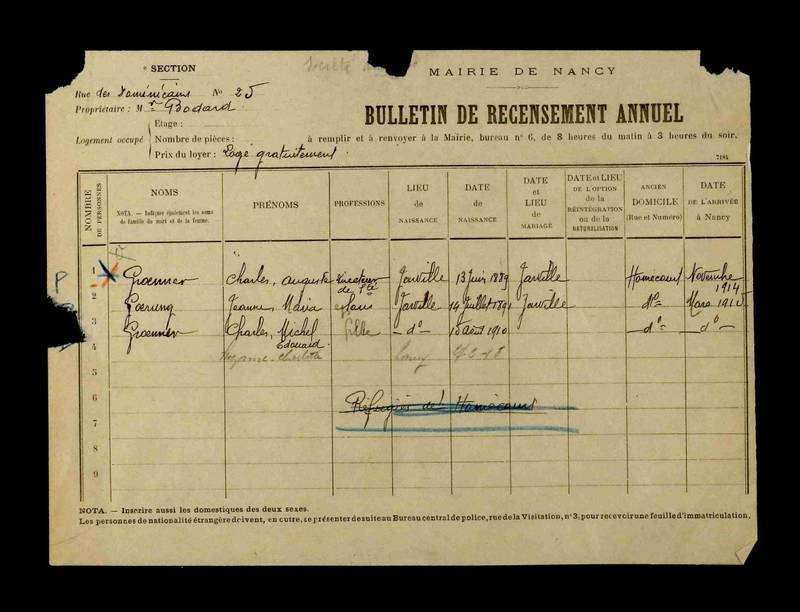 SECTION
MAIRIE DE NANCY
Rue des Dominicains No 25
Propriétaire : Mr Bodard
BULLETIN DE RECENSEMENT ANNUEL
Etage :
Logement occupé
Nombre de pièces :
à remplir et à renvoyer à la Mairie, bureau no 6, de 8 heures du matin à 3 heures du soir.
Prix du loyer : Logé gratuitement
7184
NOMBRE DE PERSONNES
NOMS
NOTA. — Indiquer également les noms de famille du mari et de la femme.
PRÉNOMS
PROFESSIONS
LIEU DE NAISSANCE
DATE DE NAISSANCE
DATE et LIEU de MARIAGE
DATE et LIEU DE L'OPTION de la RÉINTÉGRATION ou de la NATURALISATION
ANCIEN DOMICILE (Rue et Numéro)
DATE DE L'ARRIVÉE à Nancy
1 Groenner Charles, Auguste Directeur de Sté Jarville 13 Juin 1889 Jarville Homécourt Novembre 1914
2 Jeanne, Maria Jarville 14 Juillet 1891 Jarville do Mars 1915
3 Groenner Charles, Michel Edouard do 10 Août 1910 do do
4 Charlotte
5
6 Réfugiés de Homécourt
7
8
9
NOTA. — Inscrire aussi les domestiques des deux sexes.
Les personnes de nationalité étrangère doivent, en outre, se présenter de suite au Bureau central de police, rue de la Visitation, no 3, pour recevoir une feuille d'immatriculation.